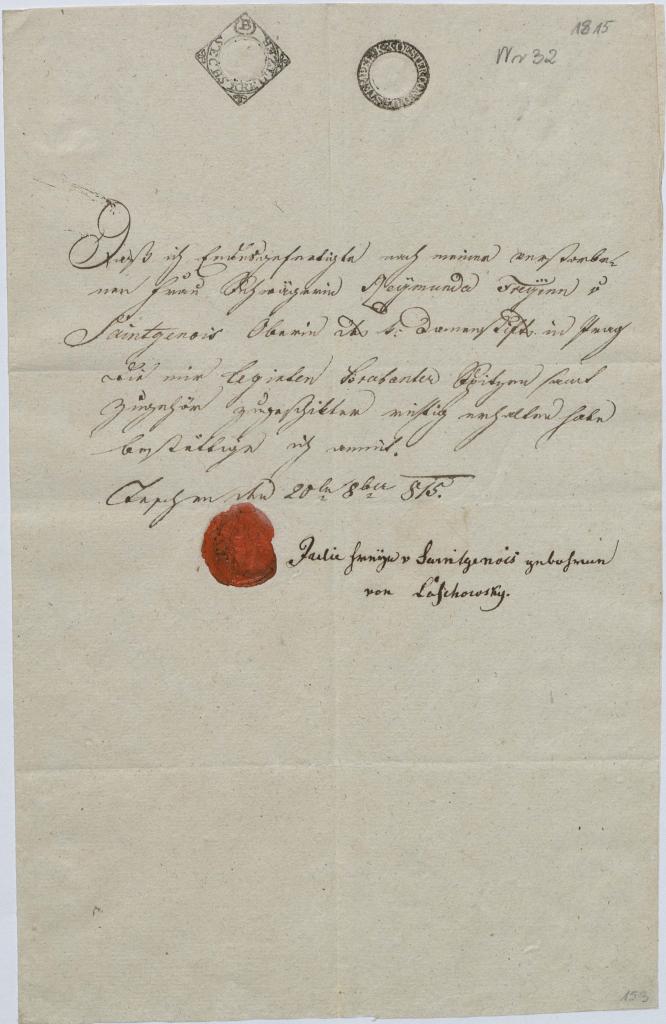 1815
Nr 32
(B)
SECHS KREUTZER
Daß ich Endesgefertigte nach meiner verstorbe=
nen Frau Schwägerin Raymunda Freyinn v
Saintgenois Oberin des k: Damenstift in Prag
die mir legirten Brabanter Spitzen samt
Zugehör zugeschikter richtig erhalten habe
bestättige ich anmit.
Teschen den 20ten 8ber 815.
Julie Freyin v Saintgenois gebohrene
von Laschowsky.
153